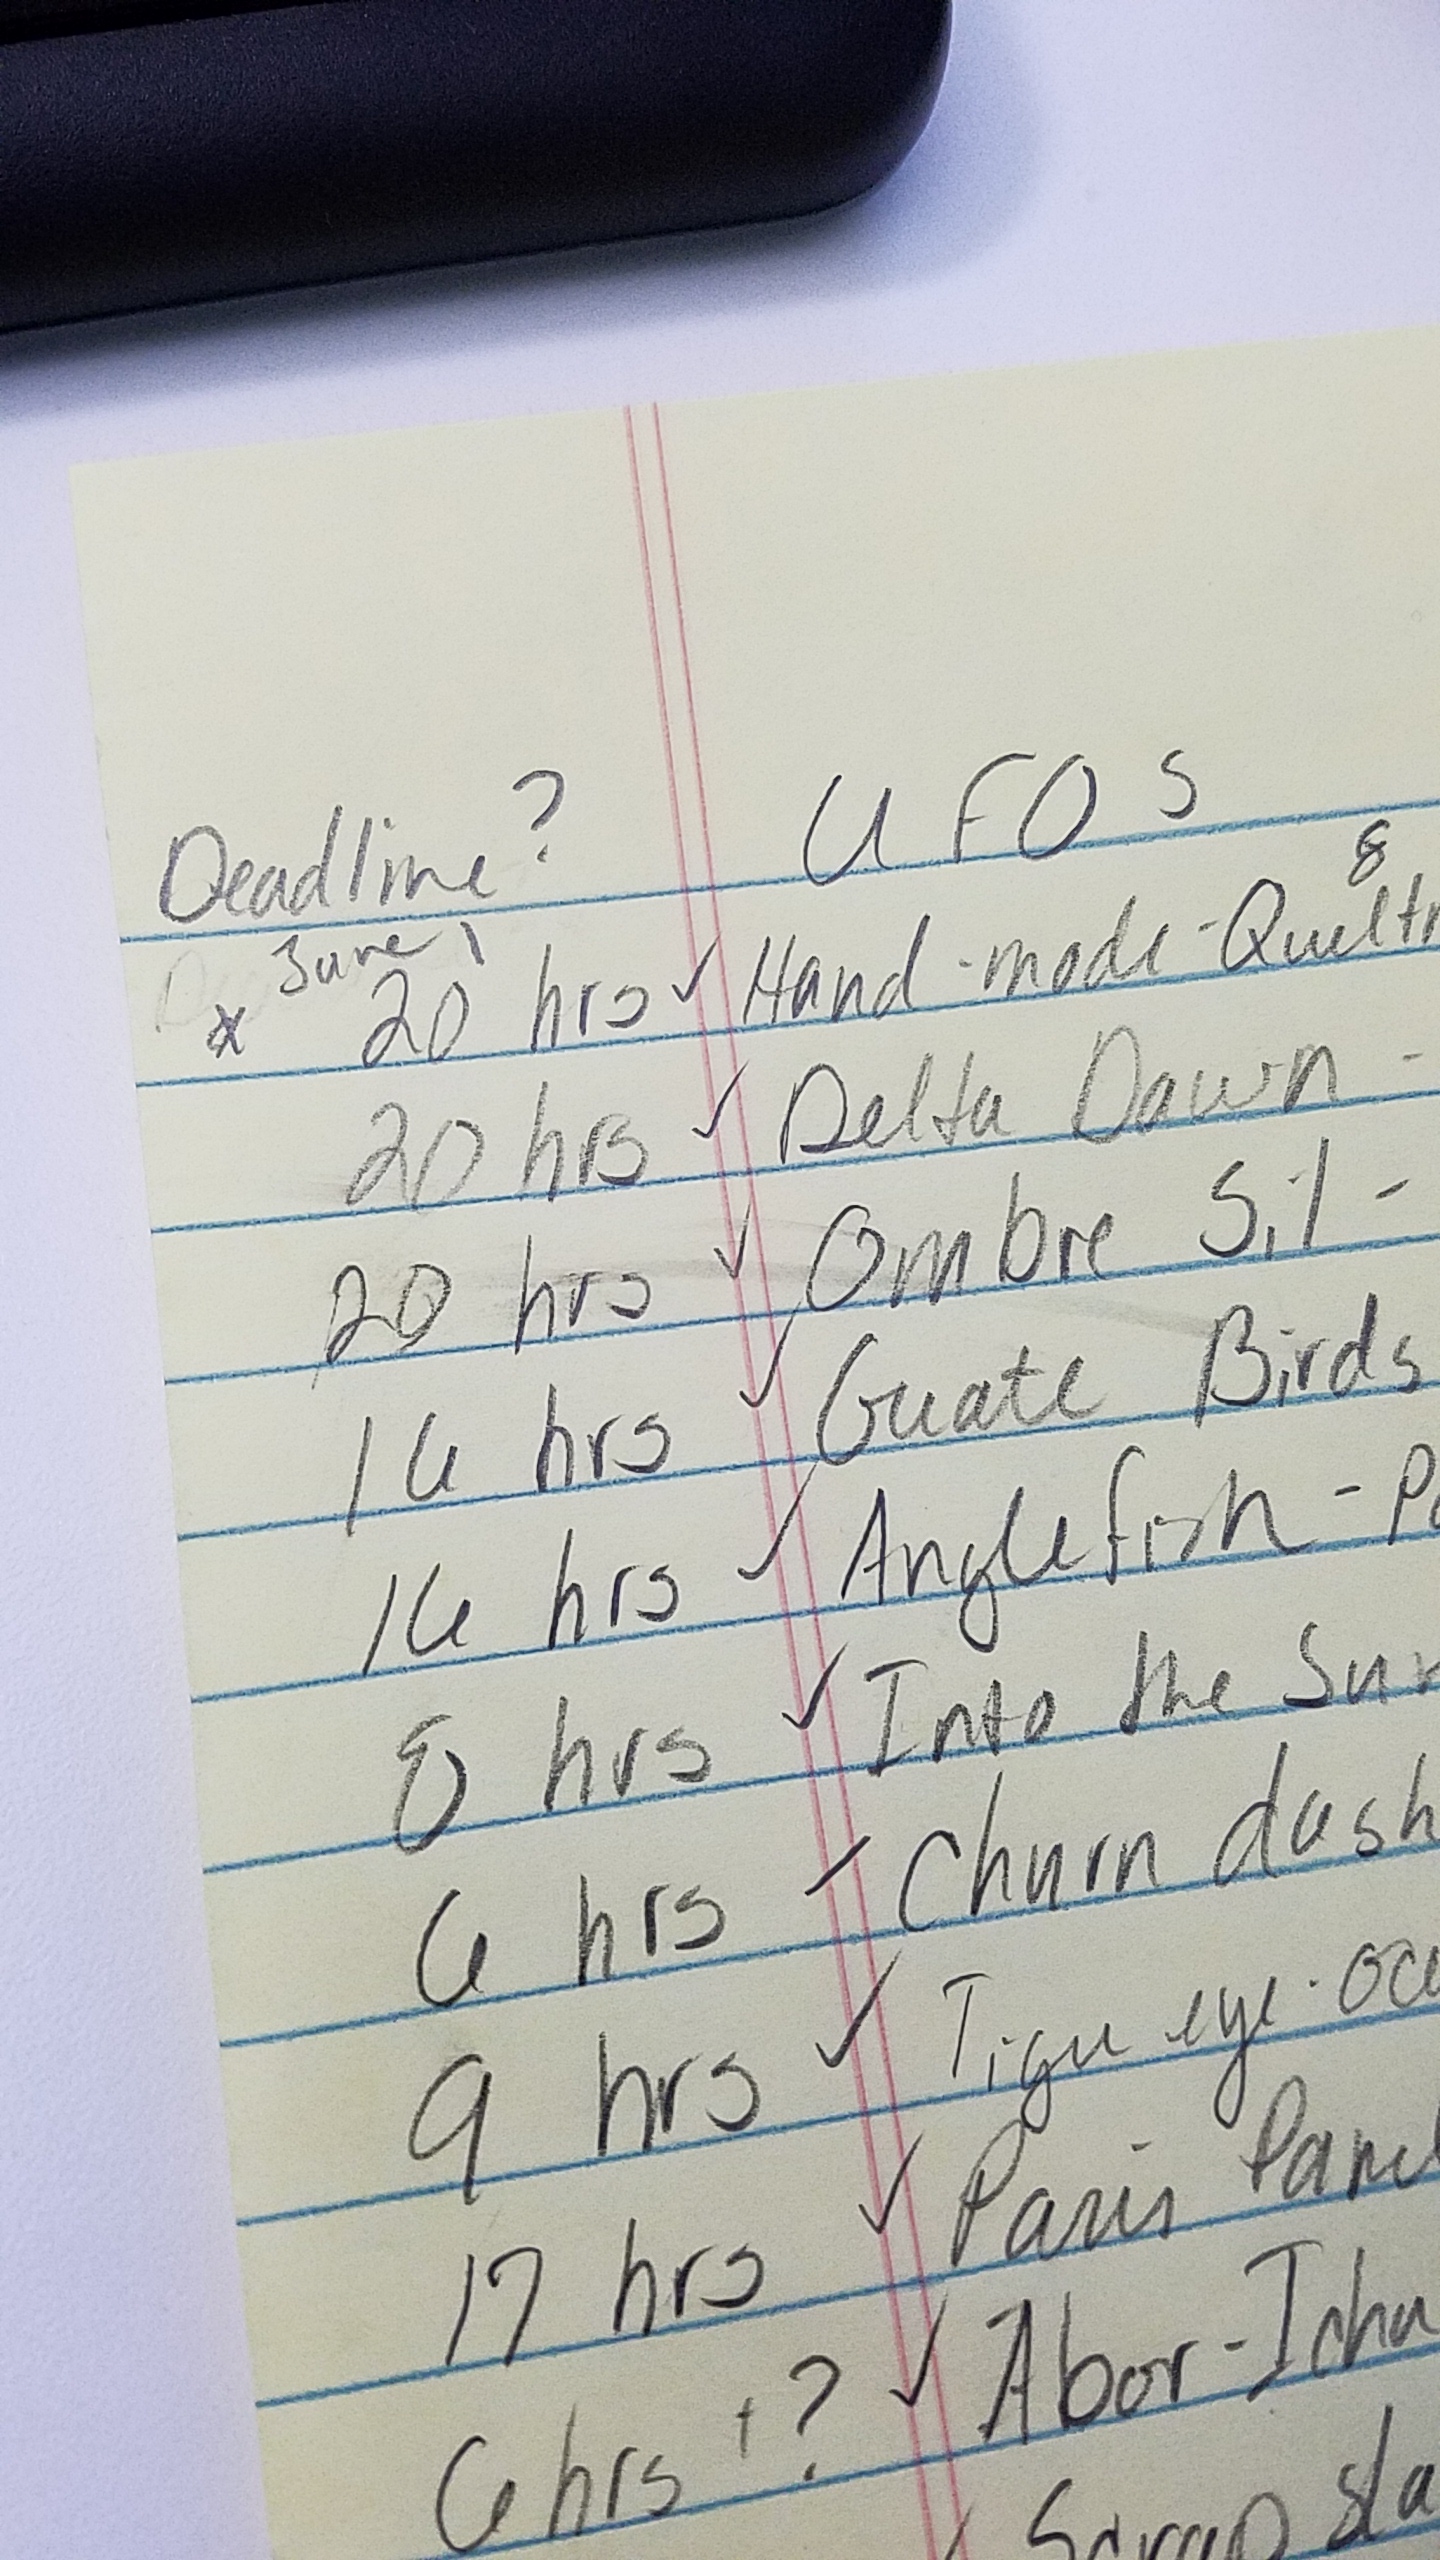 Deadline? UFOs
June 1 8
* 20 hrs ✓ Hand-made-Quiltr
20 hrs ✓ Delta Dawn -
20 hrs ✓ Ombre Sil -
16 hrs ✓ Guate Birds
16 hrs ✓ Anglefish - Pa
8 hrs ✓ Into the Sun
6 hrs - Churn dash
9 hrs ✓ eye
17 hrs ✓ Paris Panel
6 hrs + ? ✓ Abor-Icha
Scrap sla